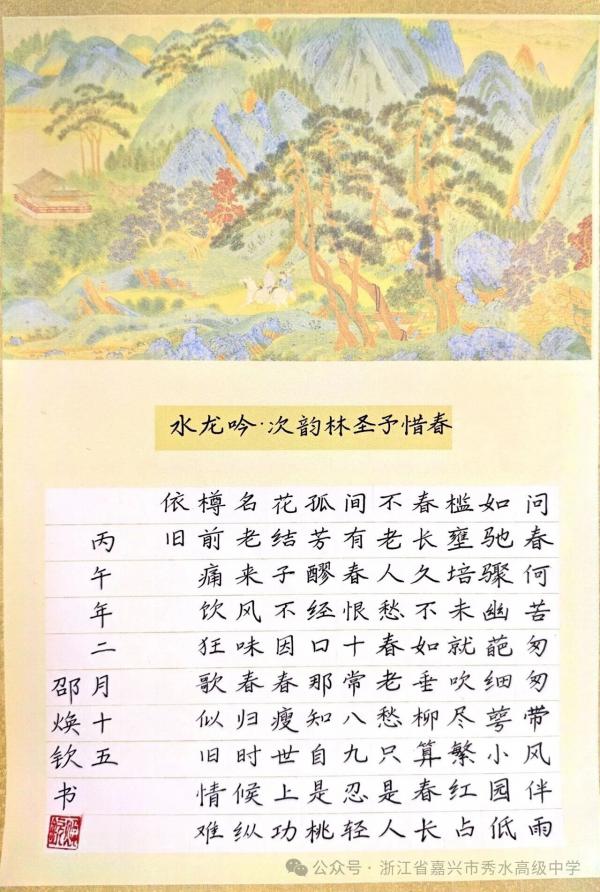 水龙吟·次韵林圣予惜春
问春何苦匆匆带风伴雨
如驰骤幽葩细萼小园低
槛壅培未就吹尽繁红占
春长久不如垂柳算春长
不老人愁春老愁只是人
间有春恨十常八九忍轻
孤芳醪经口那知自是桃
花结子不因春瘦世上功
名老来风味春归时候纵
樽前痛饮狂歌似旧情难
依旧
丙午年二月十五
邵焕钦书
公众号·浙江省嘉兴市秀水高级中学